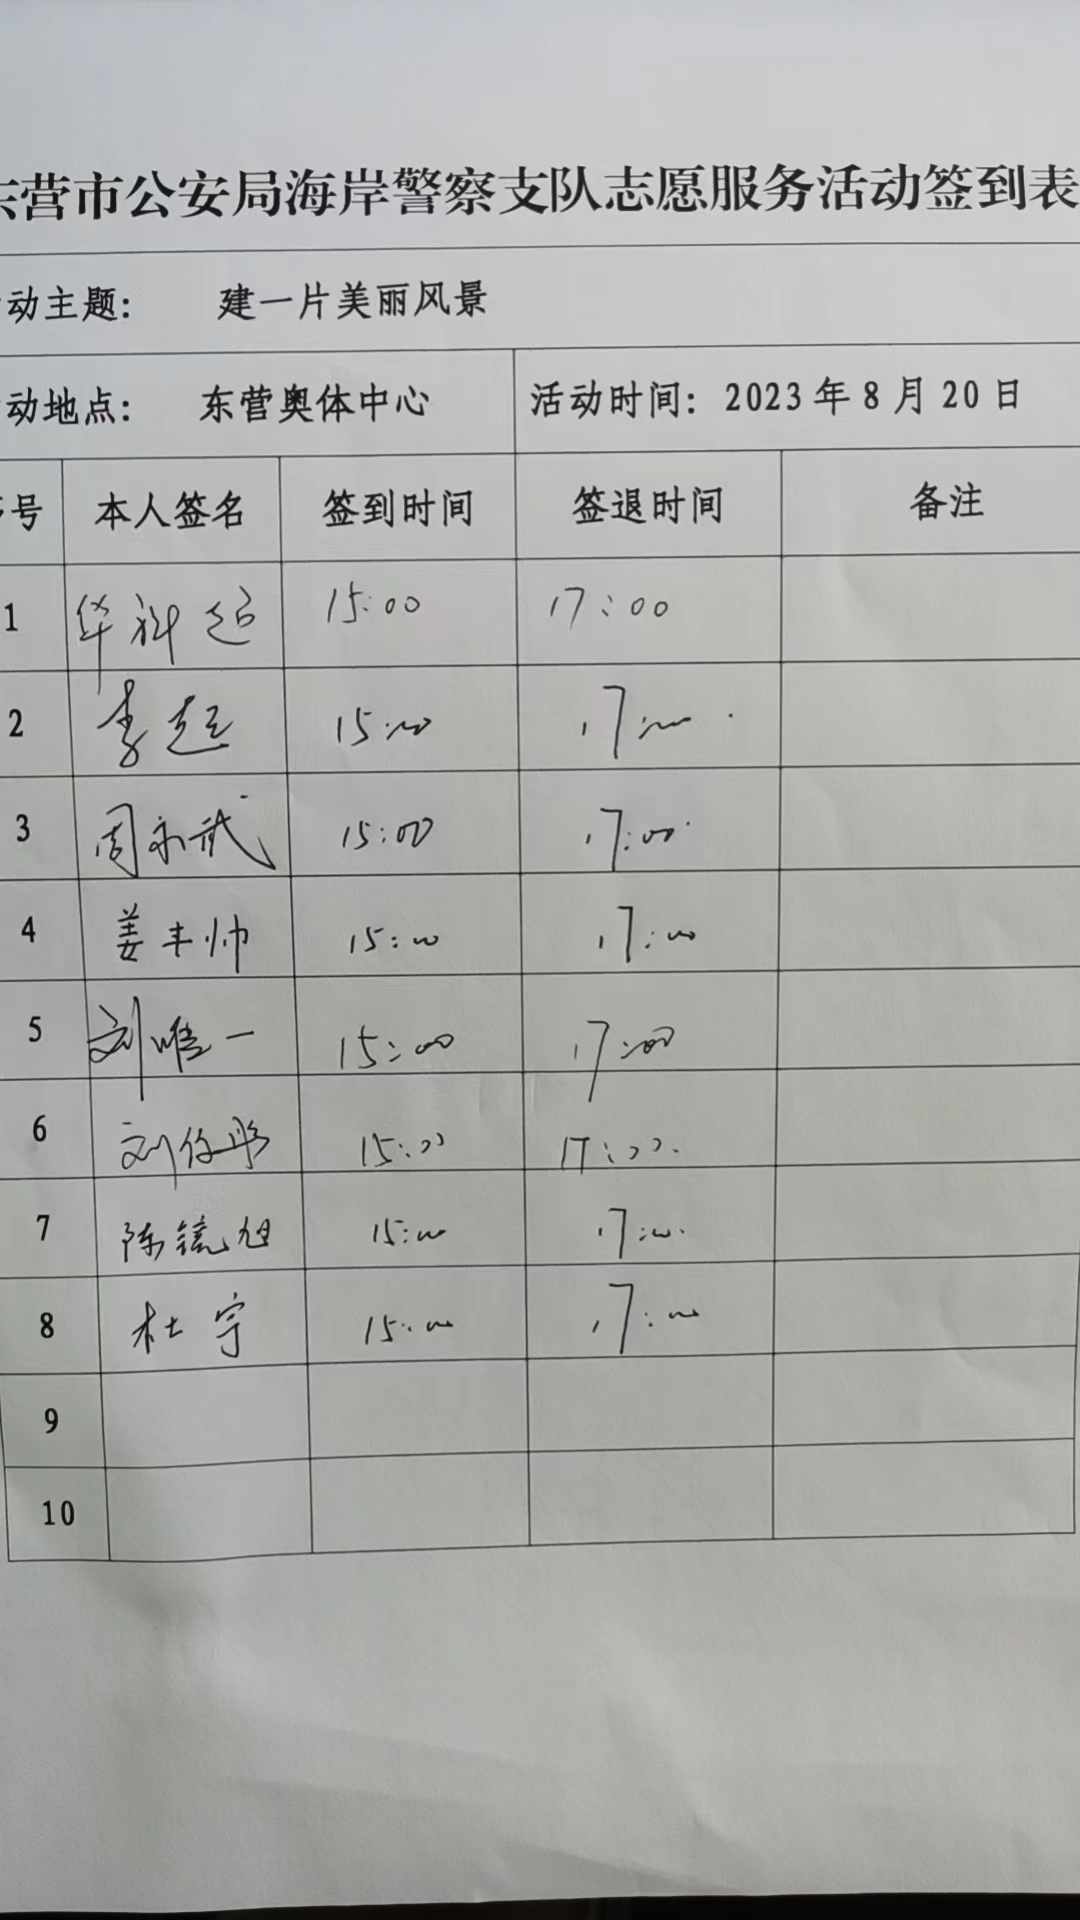 东营市公安局海岸警察支队志愿服务活动签到表
动主题： 建一片美丽风景
动地点： 东营奥体中心 活动时间：2023年8月20日
号 本人签名 签到时间 签退时间 备注
1 华科超 15:00 17:00
2 李超 15:00 17:00
3 周永武 15:00 17:00
4 姜丰帅 15:00 17:00
5 刘唯一 15:00 17:00
6 刘 15:00 17:00
7 陈 旭 15:00 17:00
8 杜宇 15:00 17:00
9
10